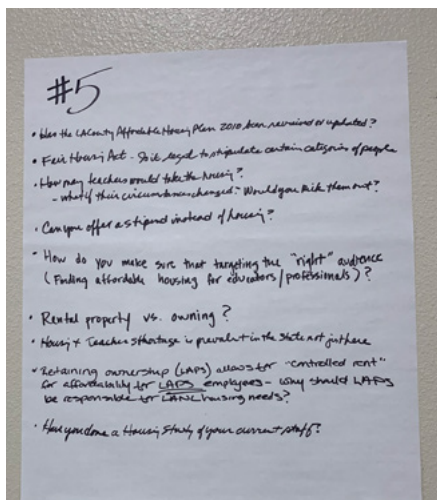 #5
• Has the LA County Affordable Housing Plan 2010 been reviewed or updated?
• Fair Housing Act - Is it legal to stipulate certain categories of people
• How many teachers would take the housing?
- what if their circumstances changed? Would you kick them out?
• Can you offer a stipend instead of housing?
• How do you make sure that targeting the "right" audience
(Finding affordable housing for educators/professionals)?
• Rental property vs. owning?
• Housing + Teacher shortage is prevalent in the state not just here
• Retaining ownership (LAPS) allows for "controlled rent"
for affordability for LAPS employees - why should LAPS
be responsible for LANL housing needs?
• Have you done a Housing Study of your current staff?